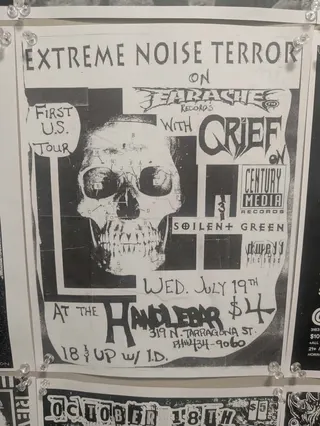 EXTREME NOISE TERROR
ON
EARACHE
RECORDS
FIRST
U.S.
TOUR
WITH GRIEF
ON
CENTURY
MEDIA
RECORDS
SOILENT GREEN
DWELL
RECORDS
WED. JULY 19TH
AT THE HANDLEBAR $4
319 N. TARRAGONA ST.
PH# 434-9060
18 & UP W/ I.D.
OCTOBER 18TH $5